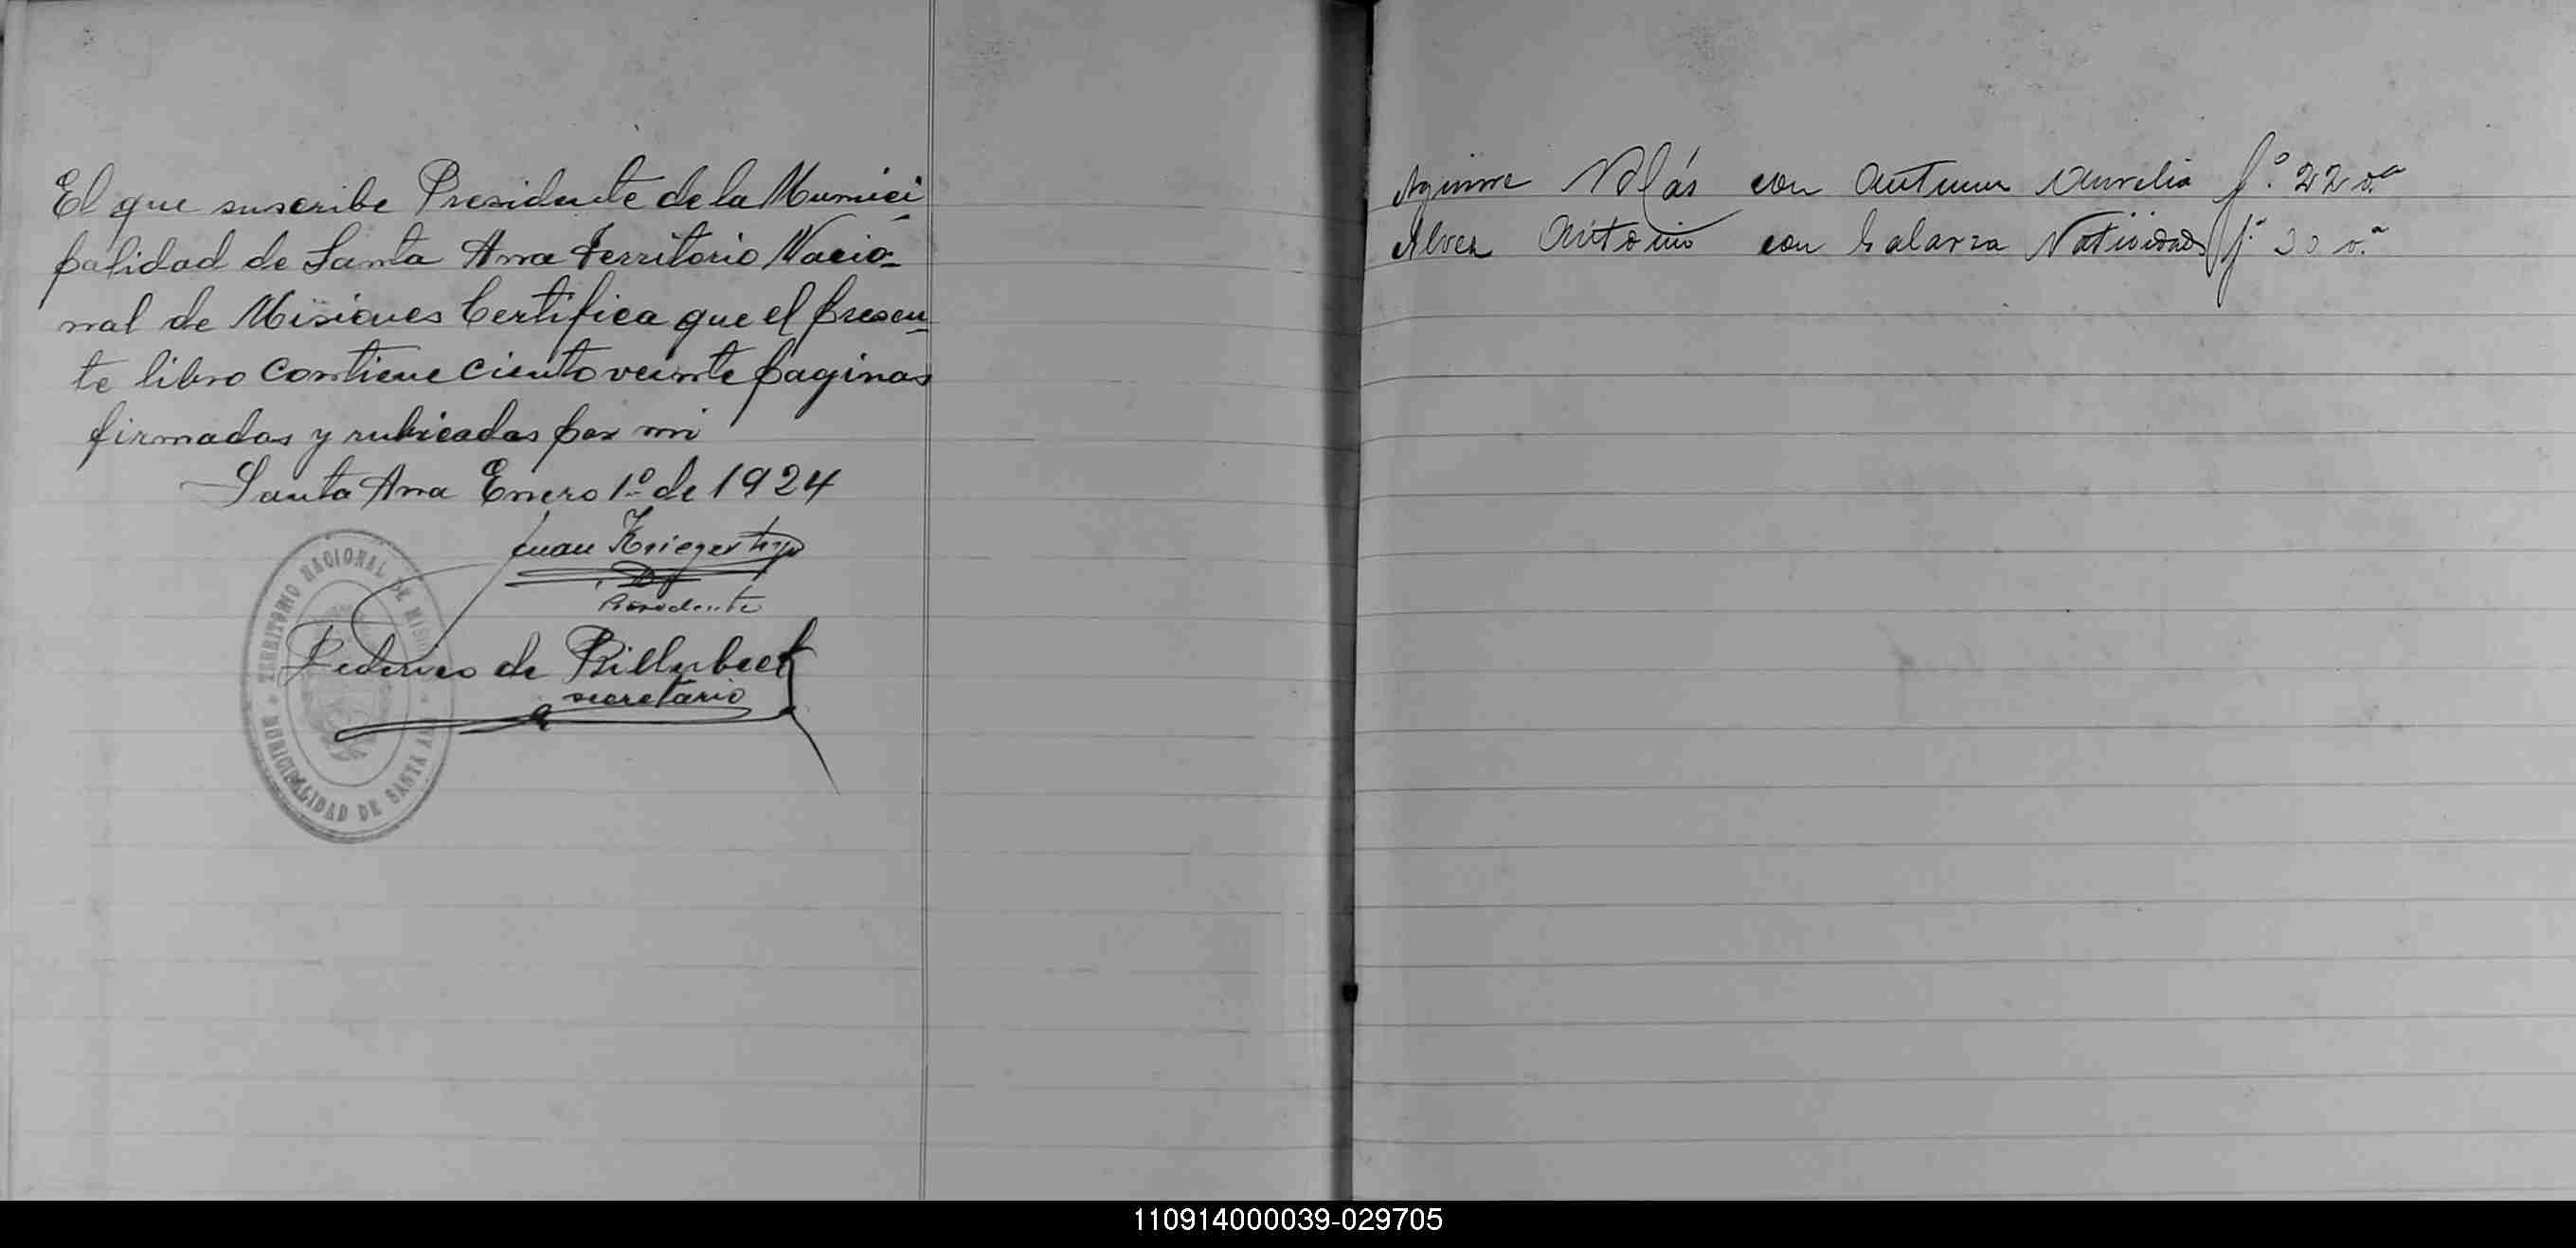 El que suscribe Presidente de la Munici
palidad de Santa Ana Territorio Nacio-
nal de Misiones Certifica que el presen-
te libro contiene ciento veinte paginas
firmadas y rubricadas por mi
Santa Ana Enero 1º de 1924
Juan Krieger hijo
Presidente
Federico de Billerbeck
secretario
TERRITORIO NACIONAL DE MISIONES
MUNICIPALIDAD DE SANTA ANA
Aguirre Blás con Aurelia fº. 22 v.ª
Alvez Antonio con Galarza Natividad fº. 30 v.ª
110914000039-029705